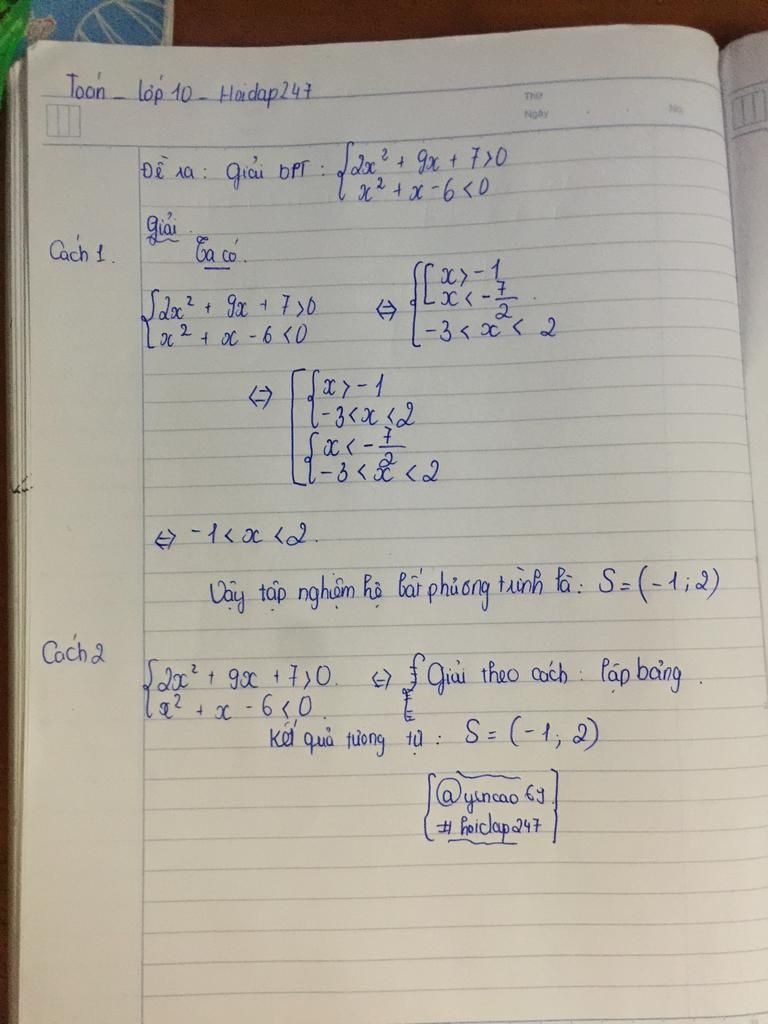 Toán - lớp 10 - Hoidap247
Thứ
Ngày
No.
Đề ra: Giải BPT: { 2x² + 9x + 7 > 0
x² + x - 6 < 0
Giải.
Cách 1.
Ta có.
{ 2x² + 9x + 7 > 0 ⇔ { [ x > -1
x < -7/2
x² + x - 6 < 0
-3 < x < 2
⇔ [ { x > -1
-3 < x < 2
{ x < -7/2
-3 < x < 2
⇔ -1 < x < 2.
Vậy tập nghiệm hệ bất phương trình là: S = (-1; 2)
Cách 2
{ 2x² + 9x + 7 > 0. ⇔ { Giải theo cách: lập bảng.
x² + x - 6 < 0.
Kết quả tương tự: S = (-1; 2)
@yencao69
# hoidap247